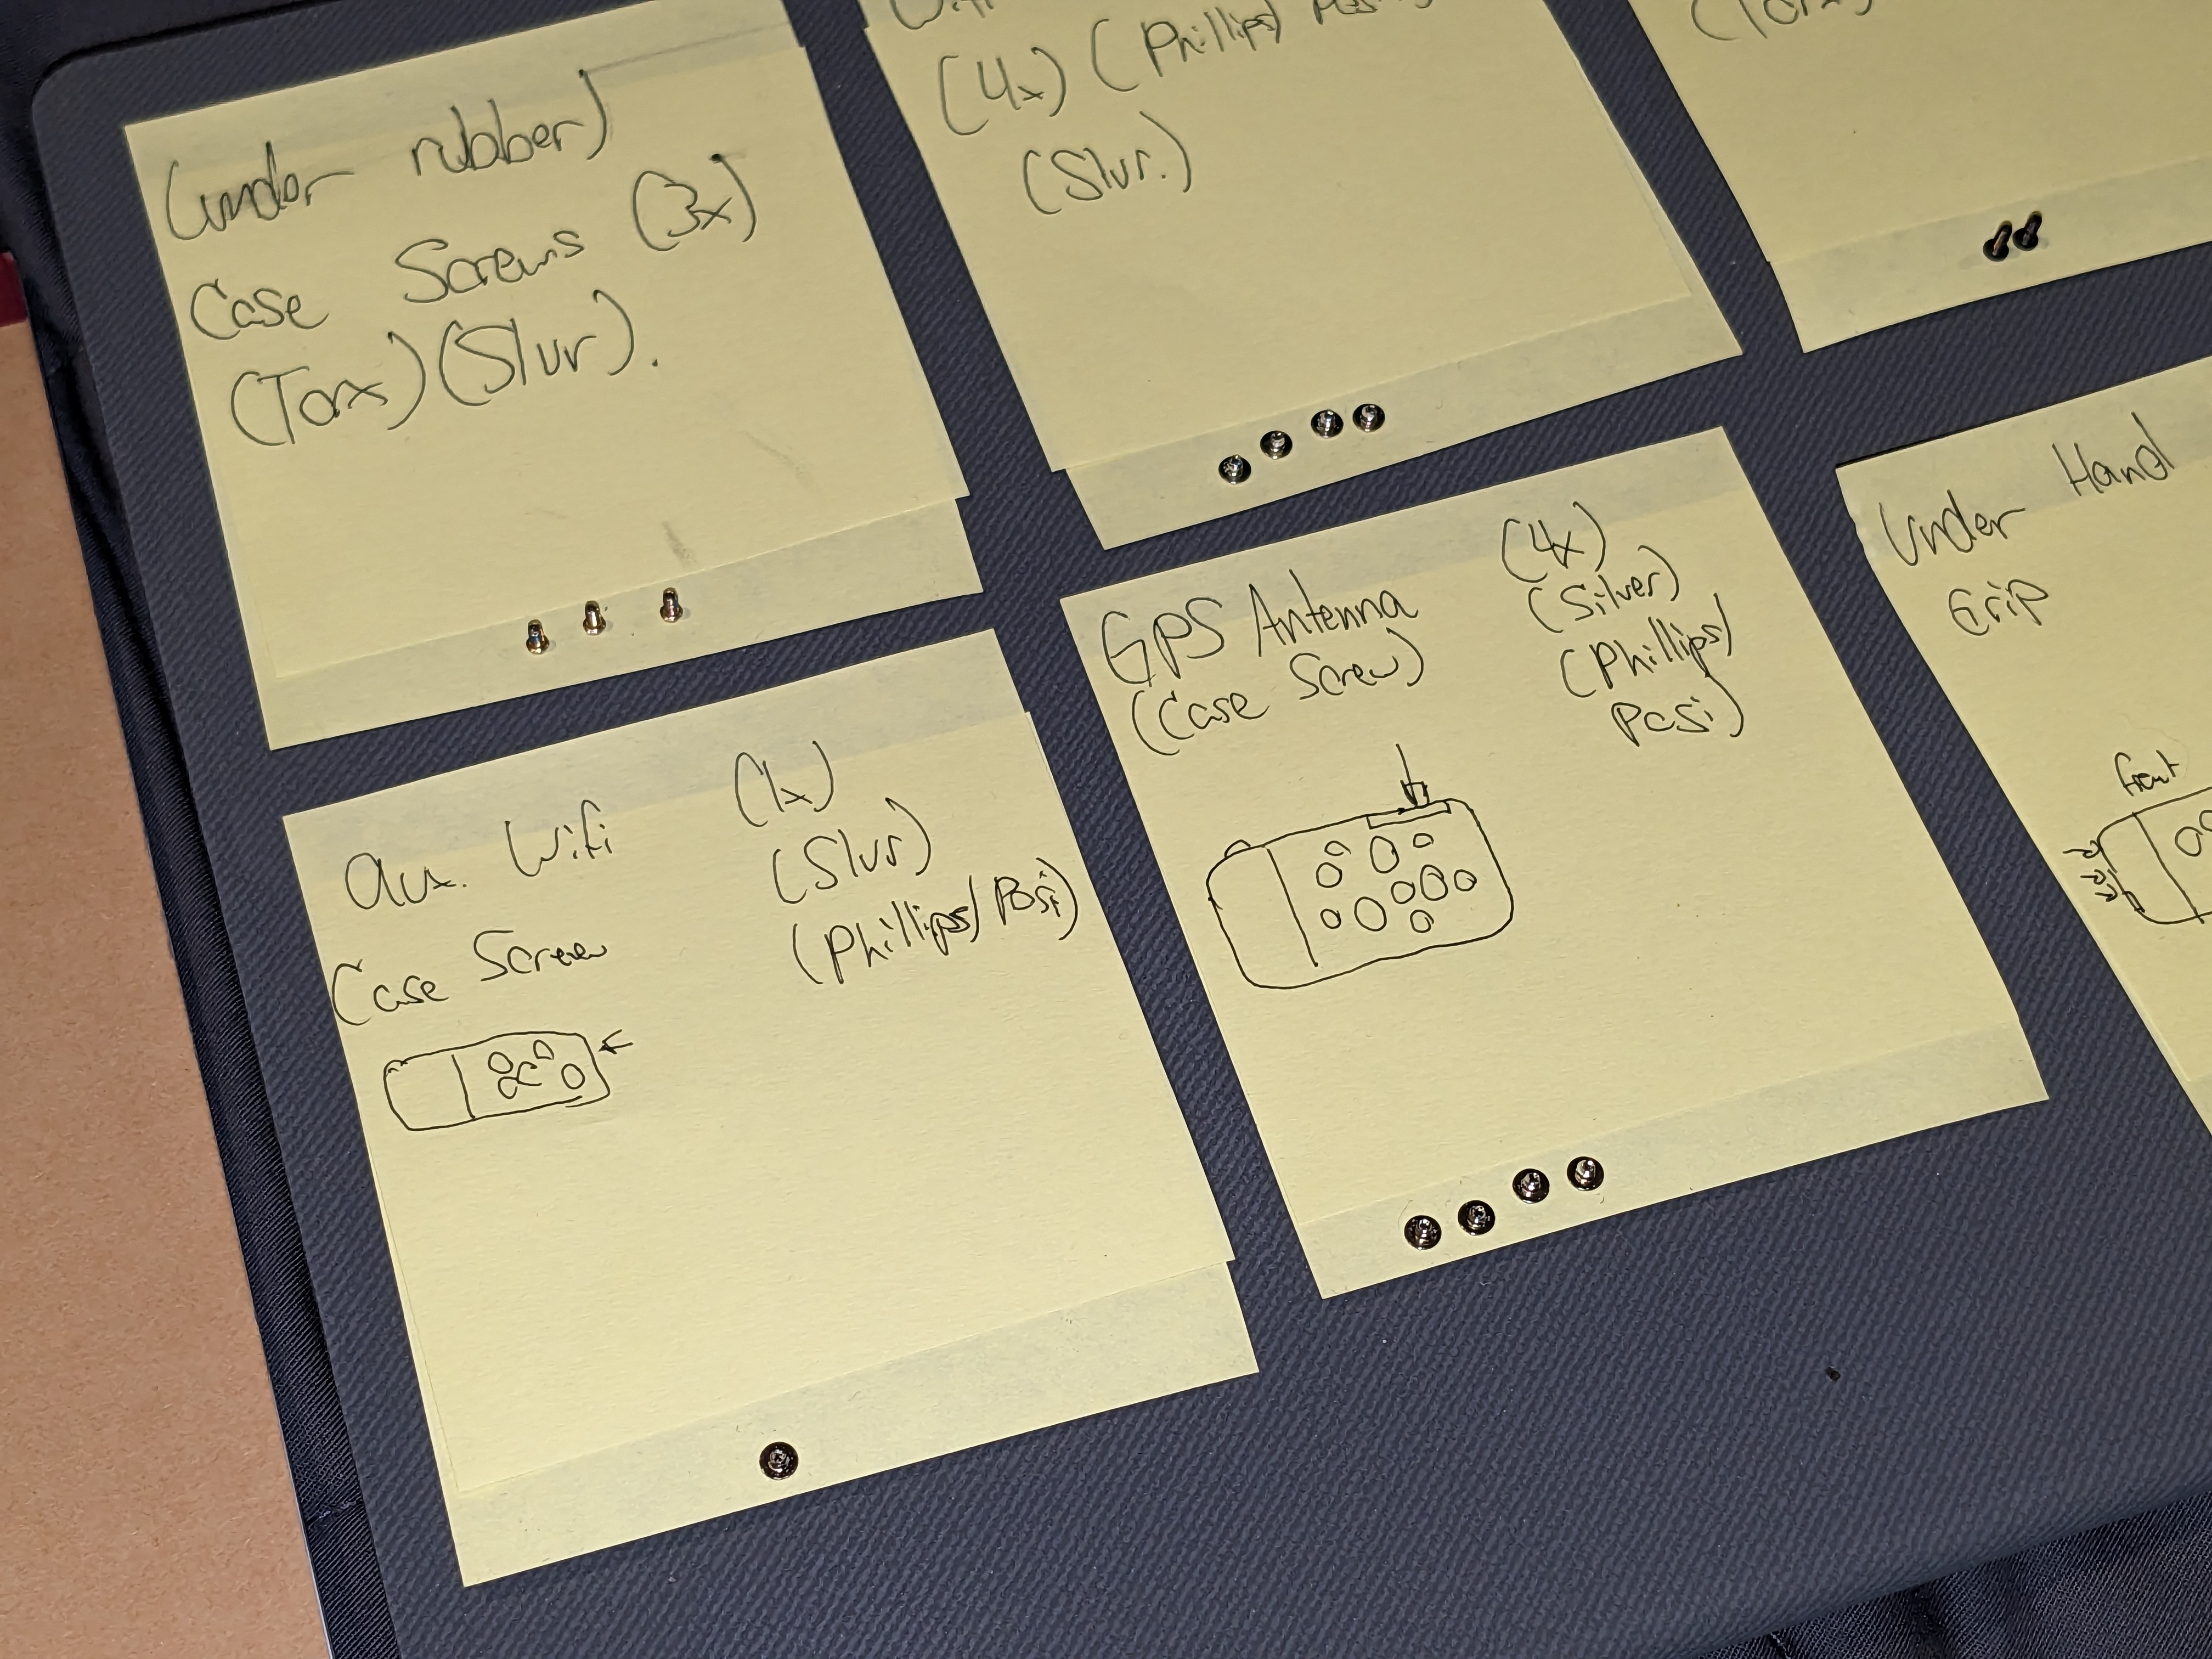 (under rubber)
Case Screws (3x)
(Torx) (Slvr).
Wifi
(4x) (Phillips/
(Slvr.)
(Torx)
Aux. Wifi (1x)
Case Screw (Slvr)
(Phillips/Posi)
GPS Antenna (4x)
(Case Screw) (Silver)
(Phillips/
Posi)
Under Hand
Grip
front